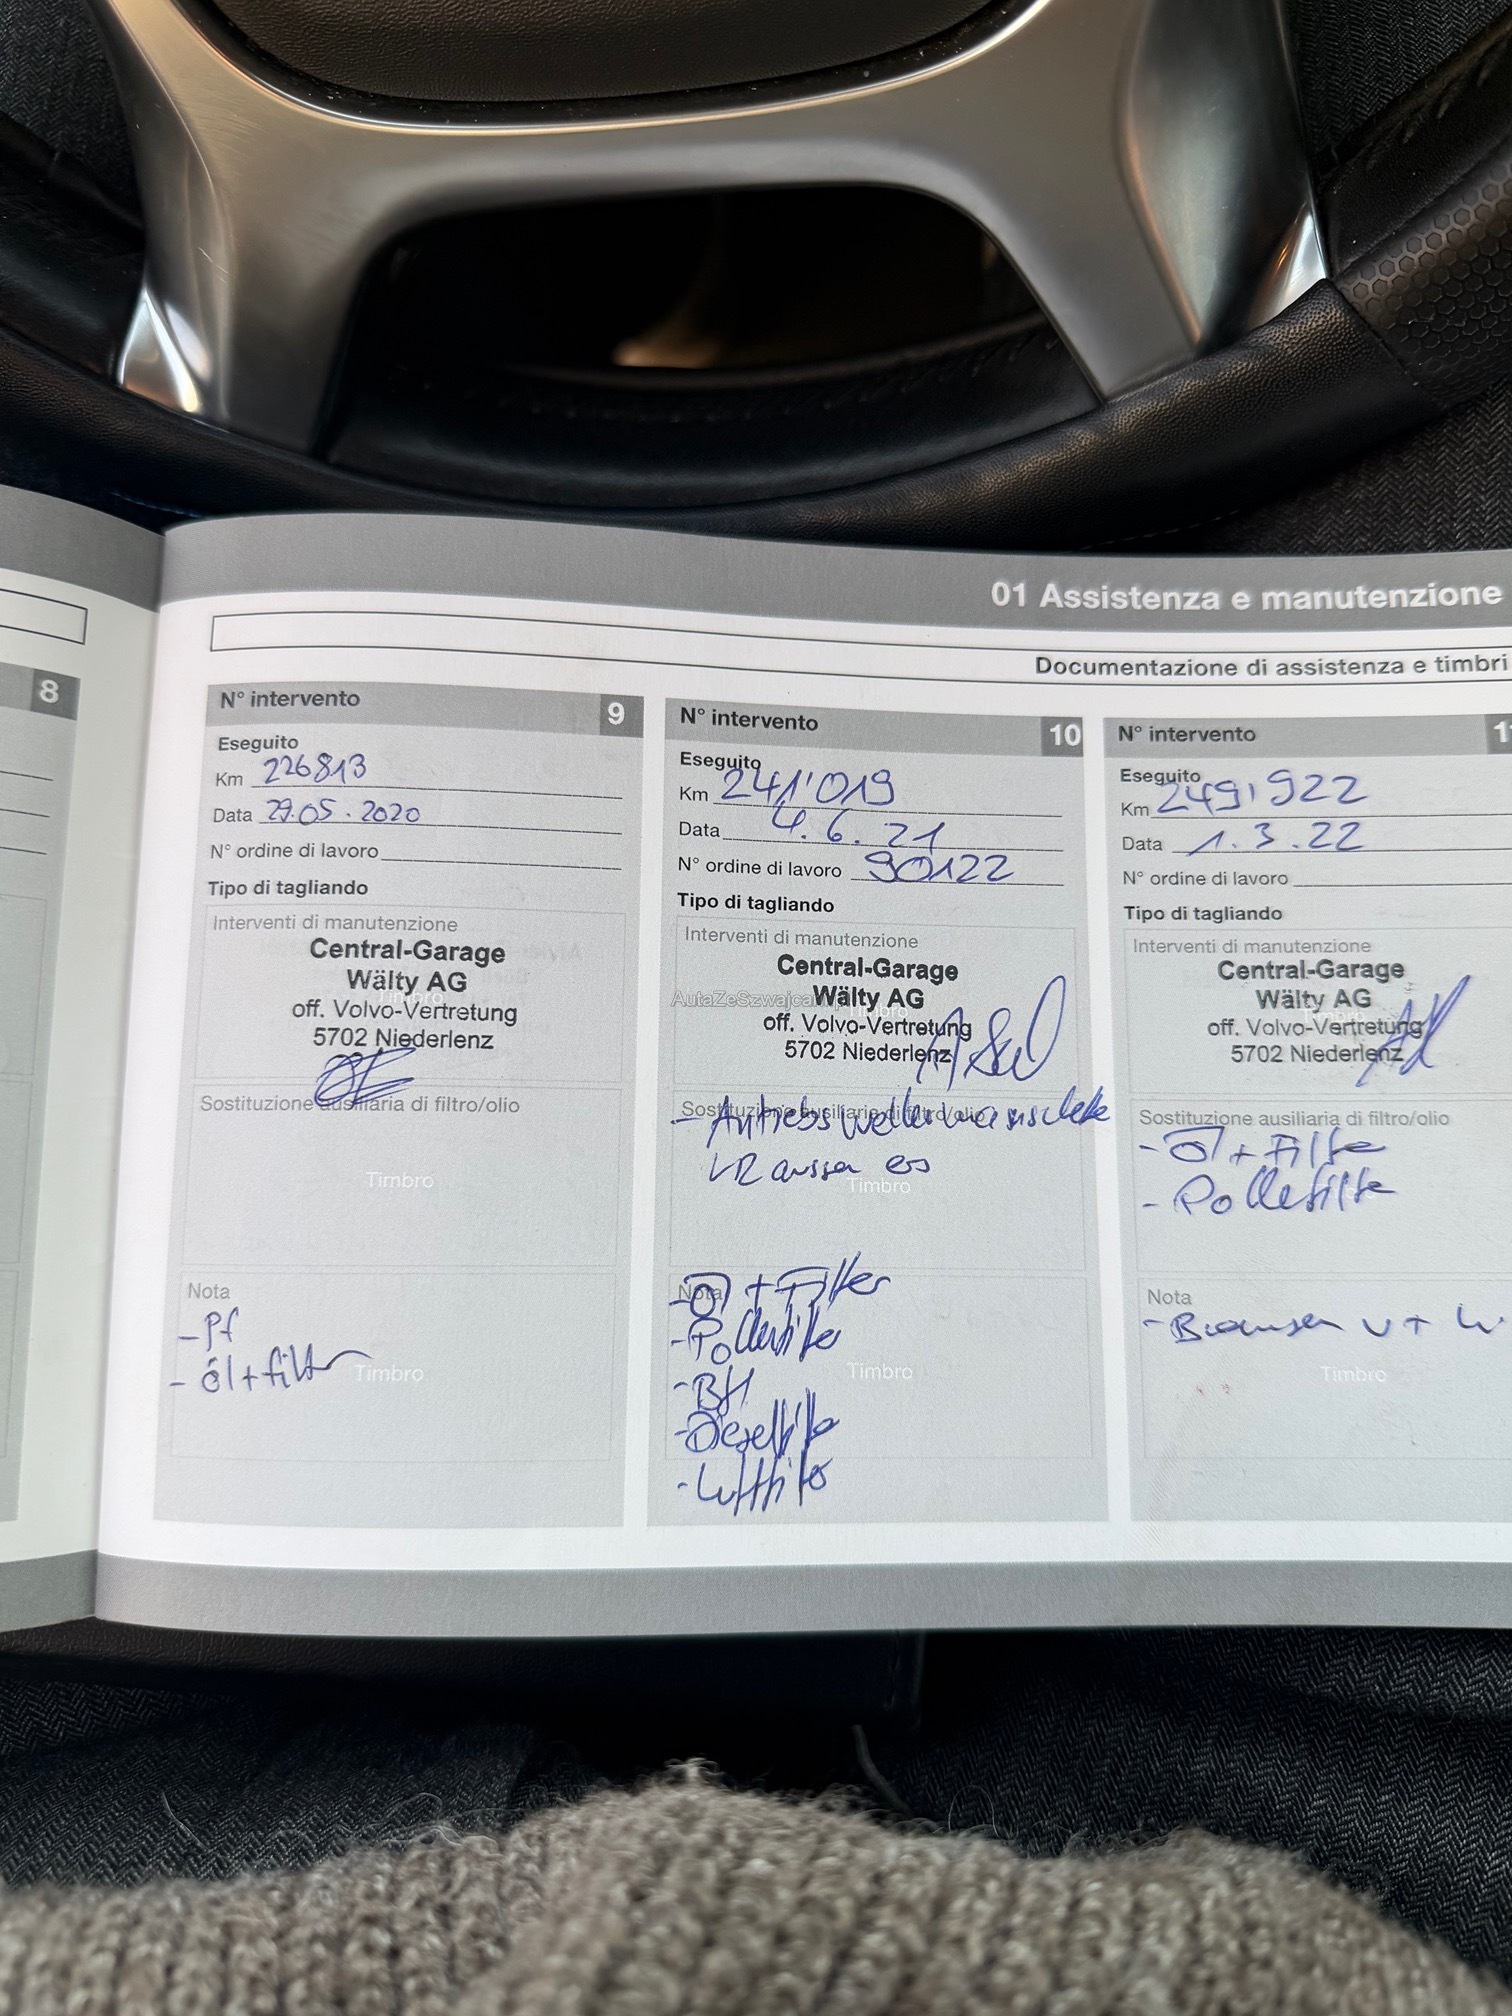 01 Assistenza e manutenzione
Documentazione di assistenza e timbri
8
N° intervento 9
Eseguito
Km 226813
Data 29.05.2020
N° ordine di lavoro
Tipo di tagliando
Interventi di manutenzione
Central-Garage
Wälty AG
off. Volvo-Vertretung
5702 Niederlenz
Sostituzione ausiliaria di filtro/olio
Timbro
Nota
- Pf
- öl + filter
Timbro
N° intervento 10
Eseguito
Km 241'019
Data 4.6.21
N° ordine di lavoro 90122
Tipo di tagliando
Interventi di manutenzione
Central-Garage
Wälty AG
off. Volvo-Vertretung
5702 Niederlenz
Sostituzione ausiliaria di filtro/olio
- Antriebswellenmanschette
aussen
Timbro
Nota
- Öl + Filter
- Pollenfilter
- BH
- Dieselfilter
- Luftfilter
Timbro
N° intervento
Eseguito
Km 249'922
Data 1.3.22
N° ordine di lavoro
Tipo di tagliando
Interventi di manutenzione
Central-Garage
Wälty AG
off. Volvo-Vertretung
5702 Niederlenz
Sostituzione ausiliaria di filtro/olio
- Öl + Filter
- Pollenfilter
Nota
- Bremsen v + h.
Timbro